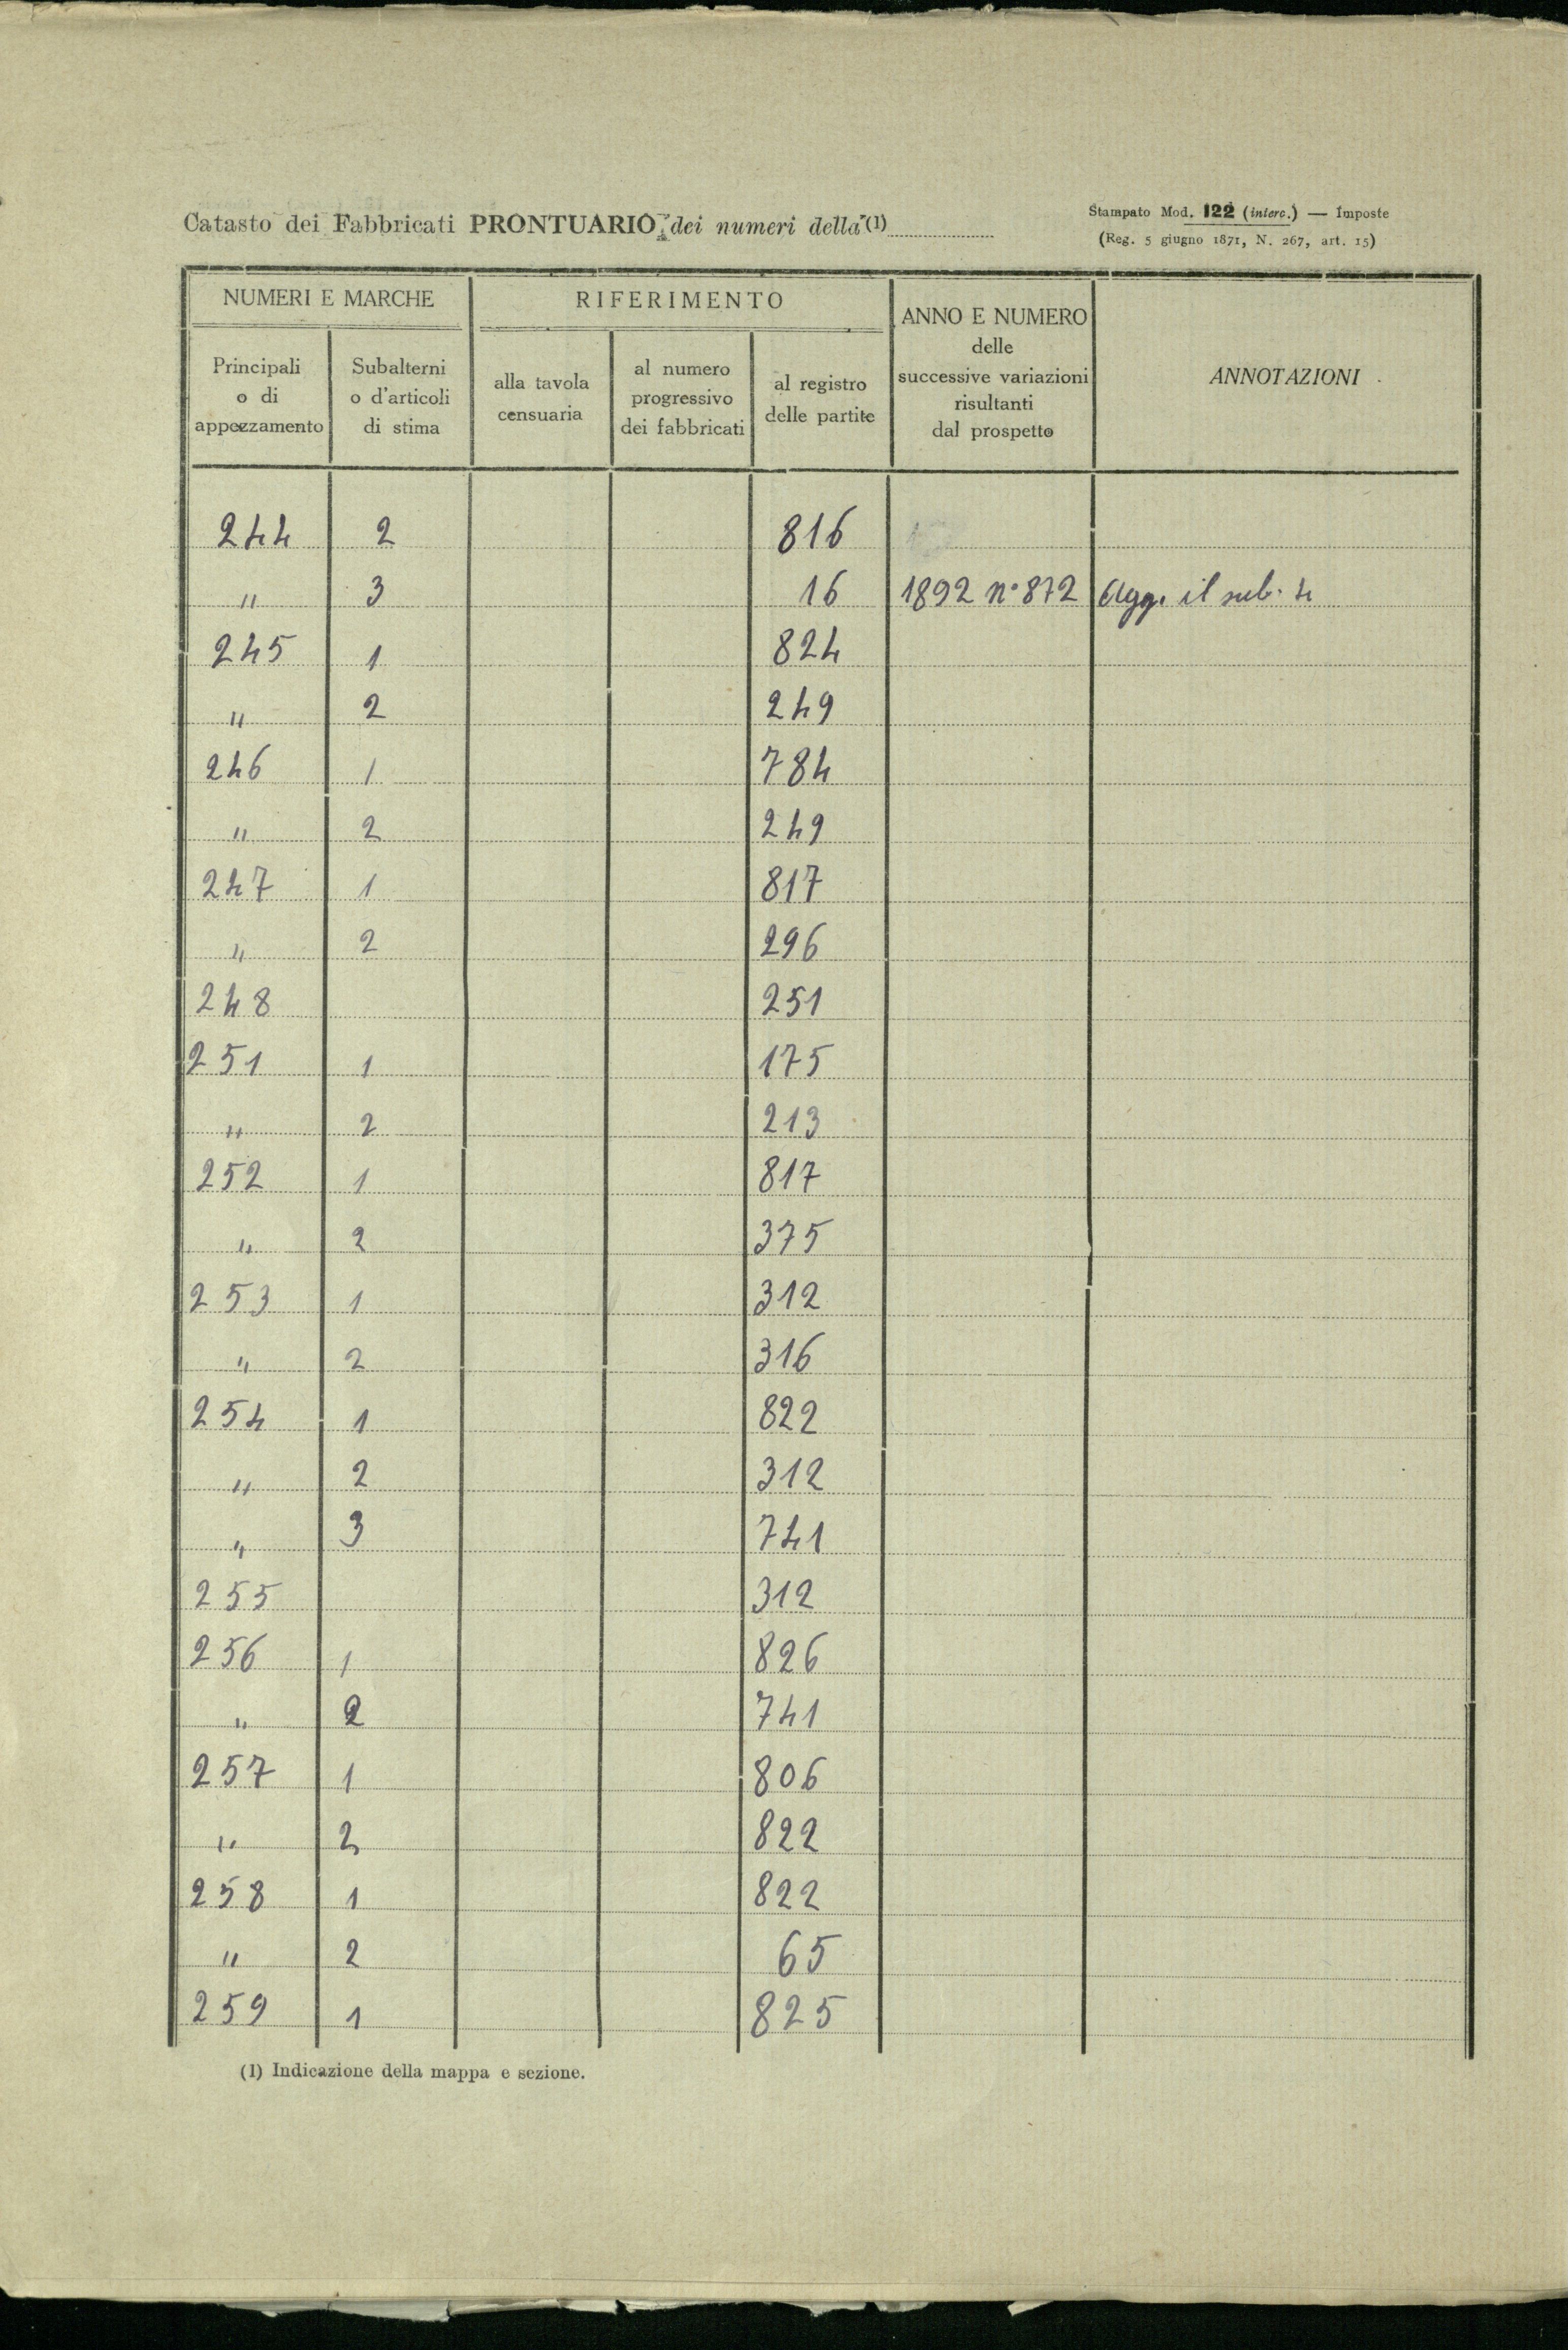 Catasto dei Fabbricati PRONTUARIO dei numeri della (1)
Stampato Mod. 122 (interc.) — Imposte
(Reg. 5 giugno 1871, N. 267, art. 15)
NUMERI E MARCHE
RIFERIMENTO
ANNO E NUMERO
delle
successive variazioni
risultanti
dal prospetto
ANNOTAZIONI
Principali
o di
appezzamento
Subalterni
o d'articoli
di stima
alla tavola
censuaria
al numero
progressivo
dei fabbricati
al registro
delle partite
244 2 816
" 3 16 1892 n° 872 Agg. il sub. 4
245 1 824
" 2 249
246 1 784
" 2 249
247 1 817
" 2 296
248 251
251 1 175
" 2 213
252 1 817
" 2 375
253 1 312
" 2 316
254 1 822
" 2 312
" 3 741
255 312
256 1 826
" 2 741
257 1 806
" 2 822
258 1 822
" 2 65
259 1 825
(1) Indicazione della mappa e sezione.